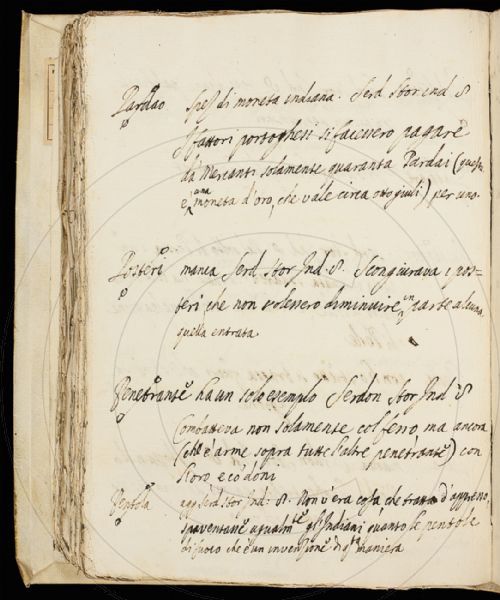 Pardao spez. di moneta indiana. Serd. Stor. ind. 8
I fattori portoghesi si facessero pagare
da Mercanti solamente quaranta Pardai (questa
è una moneta d'oro, che vale circa otto giuli) per uno.
Posteri manca Serd. Stor. Ind. 8. Scongiurava i pos=
teri che non volessero diminuire in parte alcuna
quella entrata
Penetrante ha un solo esempio Serdon. Stor. Ind. 8
Combatteva non solamente col ferro, ma ancora
(che è arme sopra tutte l'altre penetrante) con
l'oro, e co' doni
Pentola agg. Serd. Stor. Ind. 8. Non v'era cosa che tratta d'appresso
spaventasse ugualmte gl'Indiani quanto le pentole
di fuoco che è un'invenzione di qta maniera